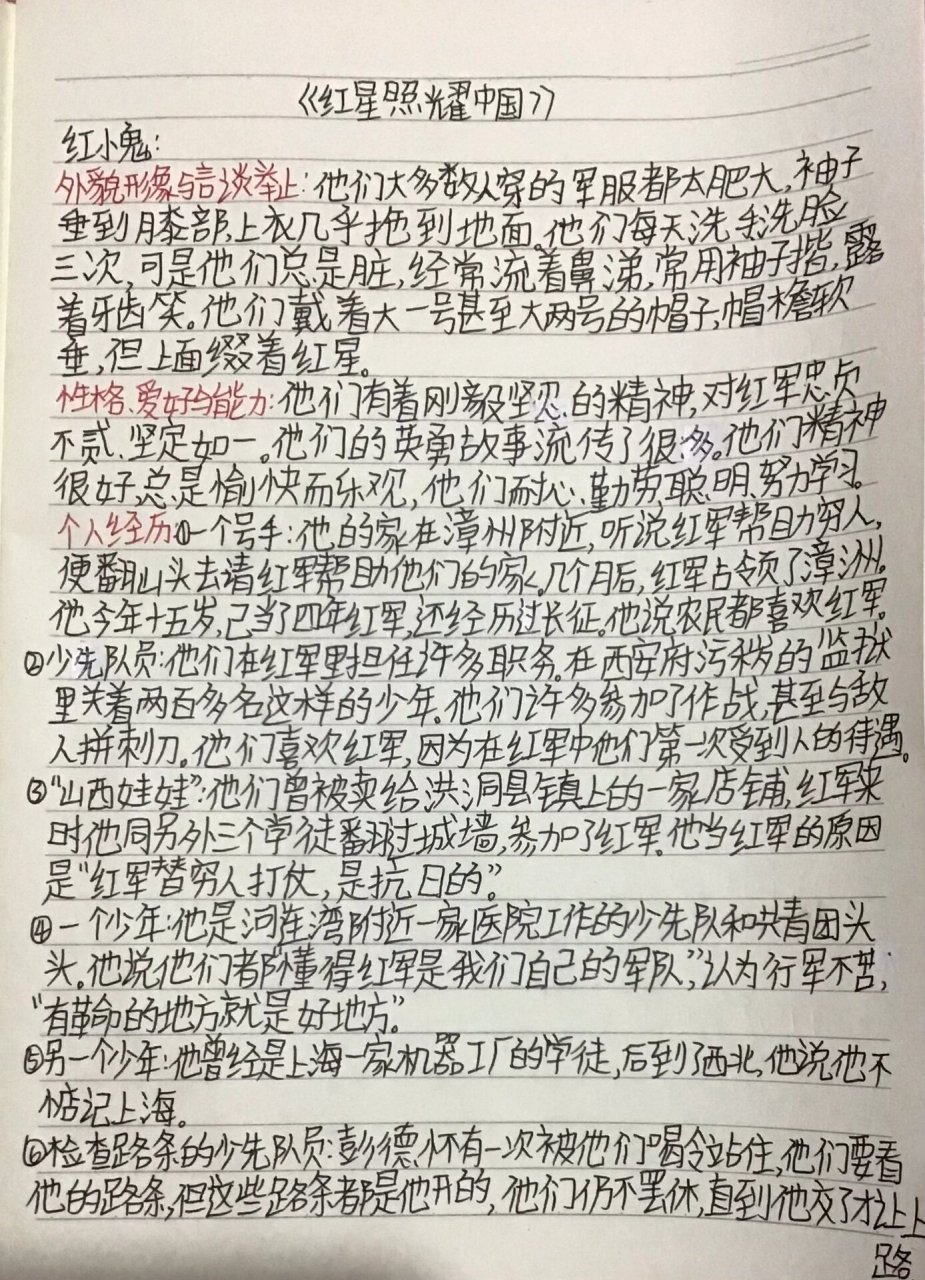 《红星照耀中国》
红小鬼:
外貌形像与言谈举止:他们大多数人穿的军服都太肥大,袖子
垂到膝部,上衣几乎拖到地面。他们每天洗手洗脸
三次,可是他们总是脏,经常流着鼻涕,常用袖子揩,露
着牙齿笑。他们戴着大一号甚至大两号的帽子,帽檐软
垂,但上面缀着红星。
性格、爱好与能力:他们有着刚毅坚忍的精神,对红军忠贞
不贰、坚定如一。他们的英勇故事流传了很多。他们精神
很好,总是愉快而乐观,他们耐心、勤劳聪明、努力学习。
个人经历:①一个号手:他的家在漳州附近,听说红军帮助穷人,
便翻山头去请红军帮助他们的家。几个月后,红军占领了漳州。
他今年十五岁,已当了四年红军,还经历过长征。他说农民都喜欢红军。
②少先队员:他们在红军里担任许多职务。在西安府污秽的监狱
里关着两百多名这样的少年。他们许多参加了作战,甚至与敌
人拼刺刀。他们喜欢红军,因为在红军中他们第一次受到人的待遇。
③“山西娃娃”:他们曾被卖给洪洞县镇上的一家店铺,红军来
时他同另外三个学徒翻过城墙,参加了红军。他当红军的原因
是“红军替穷人打仗,是抗日的”。
④一个少年:他是河连湾附近一家医院工作的少先队和共青团头
头。他说他们都懂得红军是我们自己的军队”,认为行军不苦,
“有革命的地方就是好地方”。
⑤另一个少年:他曾经是上海一家机器工厂的学徒,后到了西北,他说他不
惦记上海。
⑥检查路条的少先队员:彭德怀有一次被他们喝令站住,他们要看
他的路条,但这些路条都是他开的,他们仍不罢休,直到他交了才让上
路